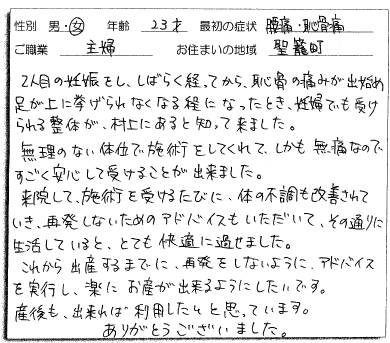 性別 男・女 年齢 23才 最初の症状 腰痛・恥骨痛
ご職業 主婦 お住まいの地域 聖籠町
2人目の妊娠をし、しばらく経ってから、恥骨の痛みが出始め
足が上に挙げられなくなる程になったとき、妊婦でも受け
られる整体が、村上にあると知って来ました。
無理のない体位で施術をしてくれて、しかも無痛なので
すごく安心して受けることが出来ました。
来院して、施術を受けるたびに、体の不調も改善されて
いき、再発しないためのアドバイスもいただいて、その通りに
生活していると、とても快適に過せました。
これから出産するまでに、再発をしないように、アドバイス
を実行し、楽にお産が出来るようにしたいです。
産後も、出来れば利用したいと思っています。
ありがとうございました。